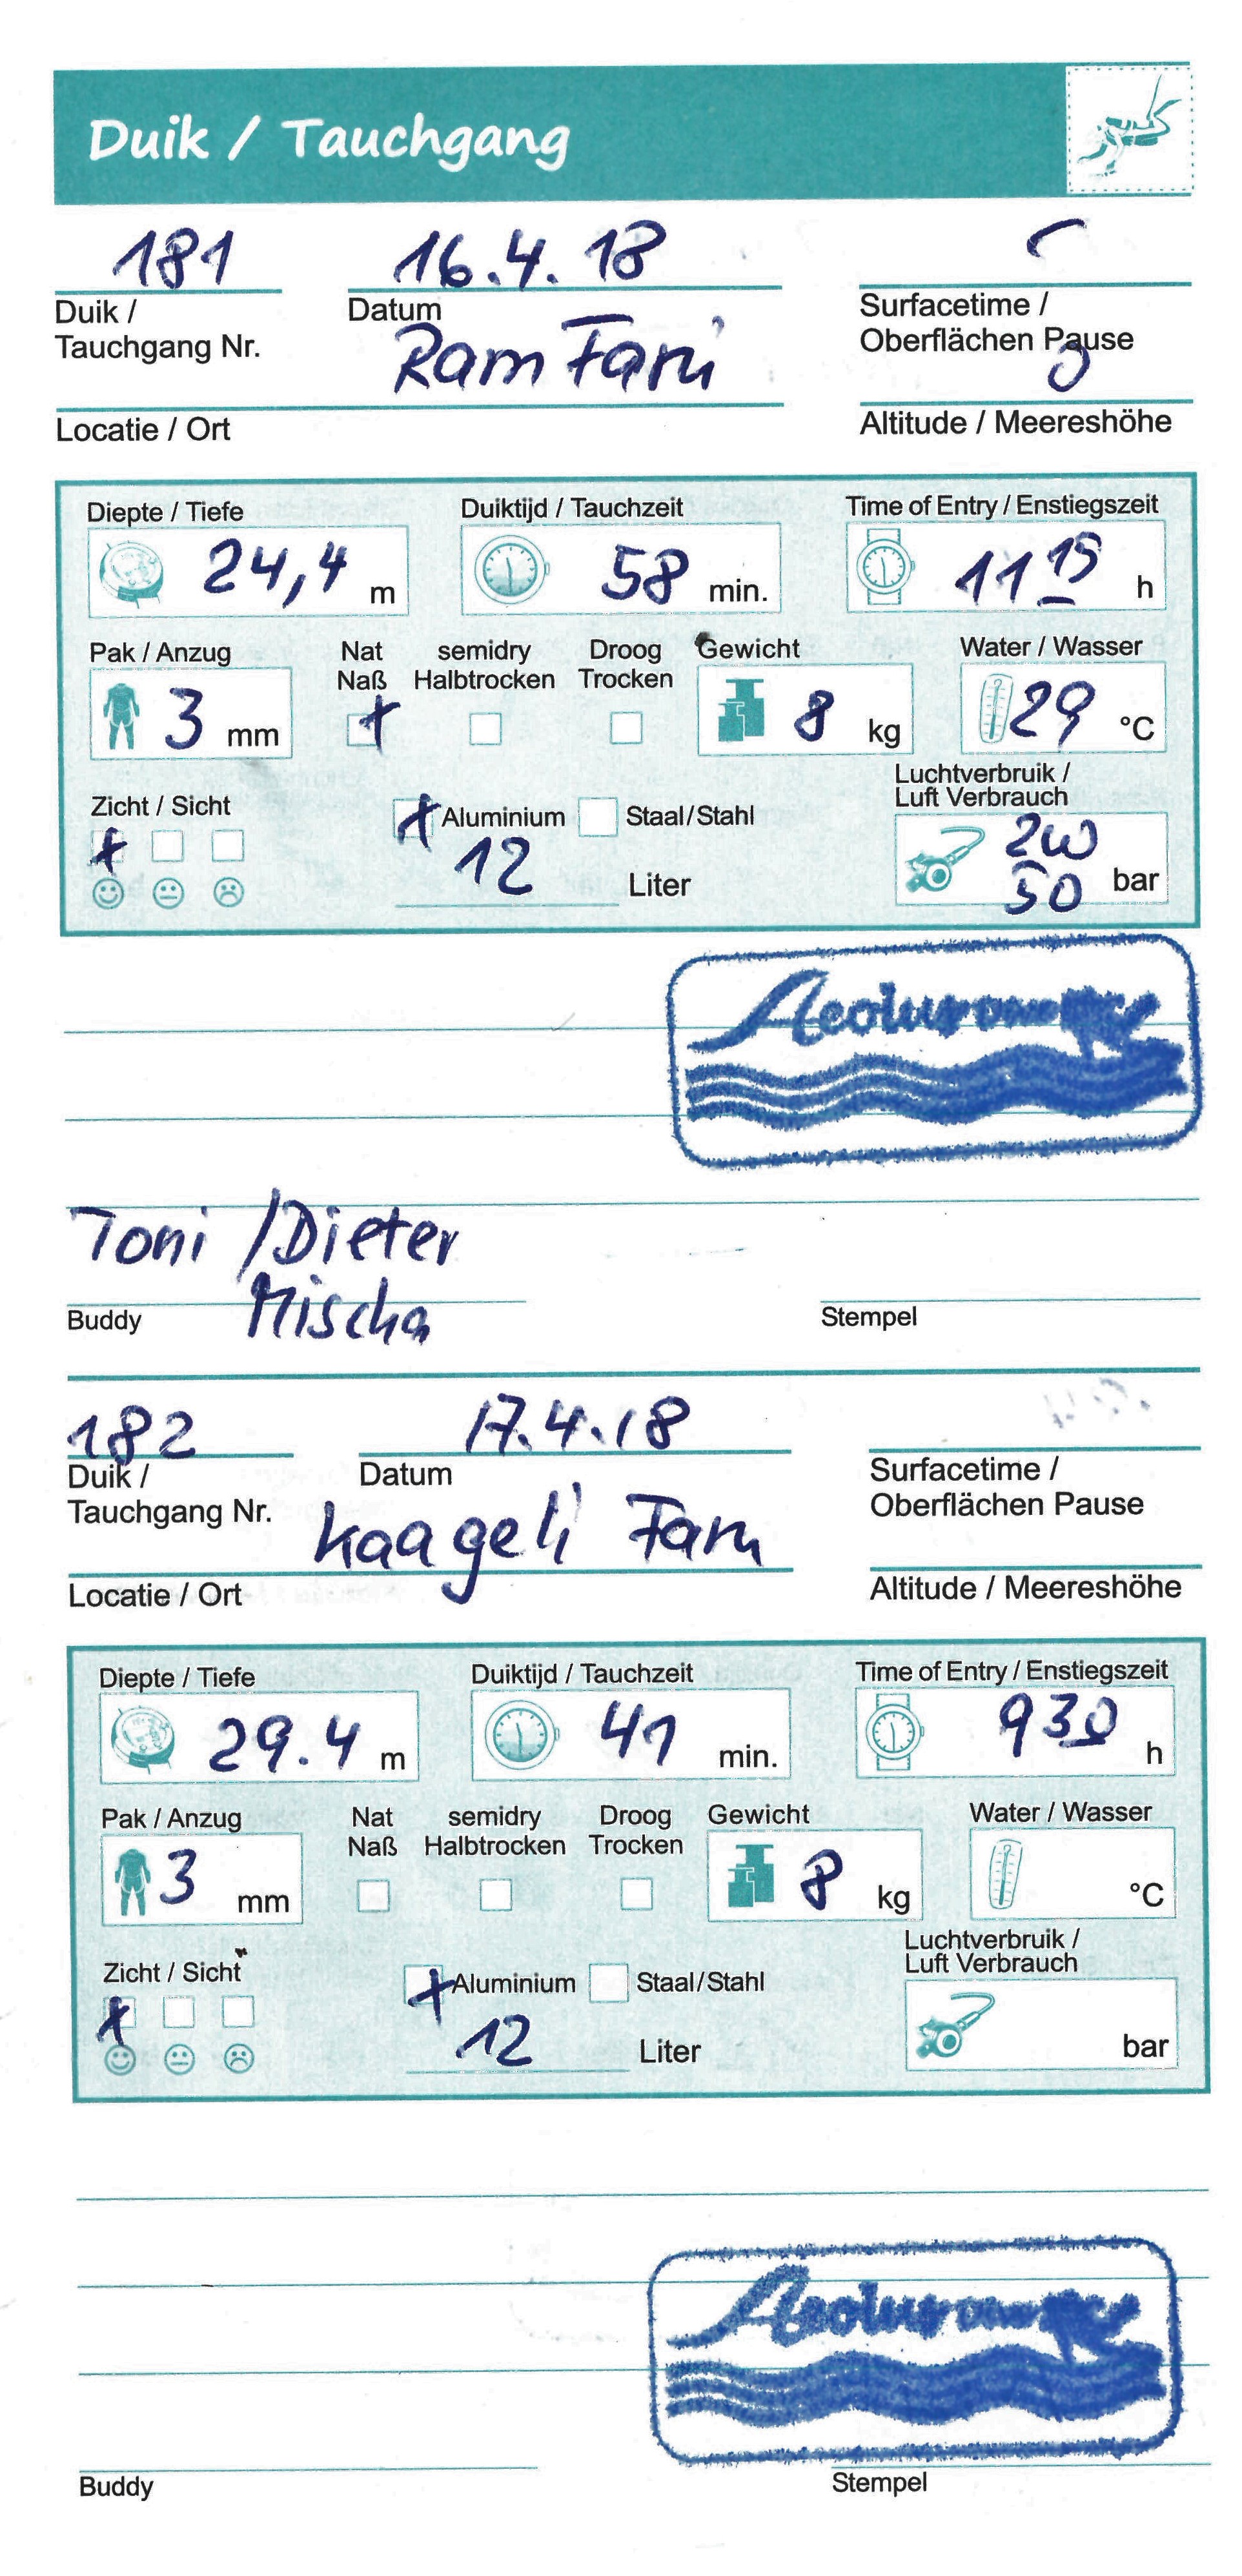 Duik / Tauchgang
181 16.4.18
Duik / Datum Surfacetime /
Tauchgang Nr. Oberflächen Pause
Ram Faru 0
Locatie / Ort Altitude / Meereshöhe
Diepte / Tiefe Duiktijd / Tauchzeit Time of Entry / Enstiegszeit
24,4 m 58 min. 11 15 h
Pak / Anzug Nat semidry Droog Gewicht Water / Wasser
Naß Halbtrocken Trocken
3 mm 8 kg 29 °C
Luchtverbruik /
Zicht / Sicht Aluminium Staal/Stahl Luft Verbrauch
200
12 Liter 50 bar
Toni / Dieter
Mischa
Buddy Stempel
182 17.4.18
Duik / Datum Surfacetime /
Tauchgang Nr. Oberflächen Pause
Kaageli Faru
Locatie / Ort Altitude / Meereshöhe
Diepte / Tiefe Duiktijd / Tauchzeit Time of Entry / Enstiegszeit
29.4 m 41 min. 930 h
Pak / Anzug Nat semidry Droog Gewicht Water / Wasser
Naß Halbtrocken Trocken
3 mm 8 kg °C
Luchtverbruik /
Zicht / Sicht Aluminium Staal/Stahl Luft Verbrauch
12 Liter bar
Buddy Stempel